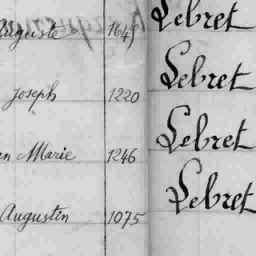 Auguste 1645 Lebret
Joseph 1220 Lebret
Marie 1246 Lebret
Augustin 1075 Lebret